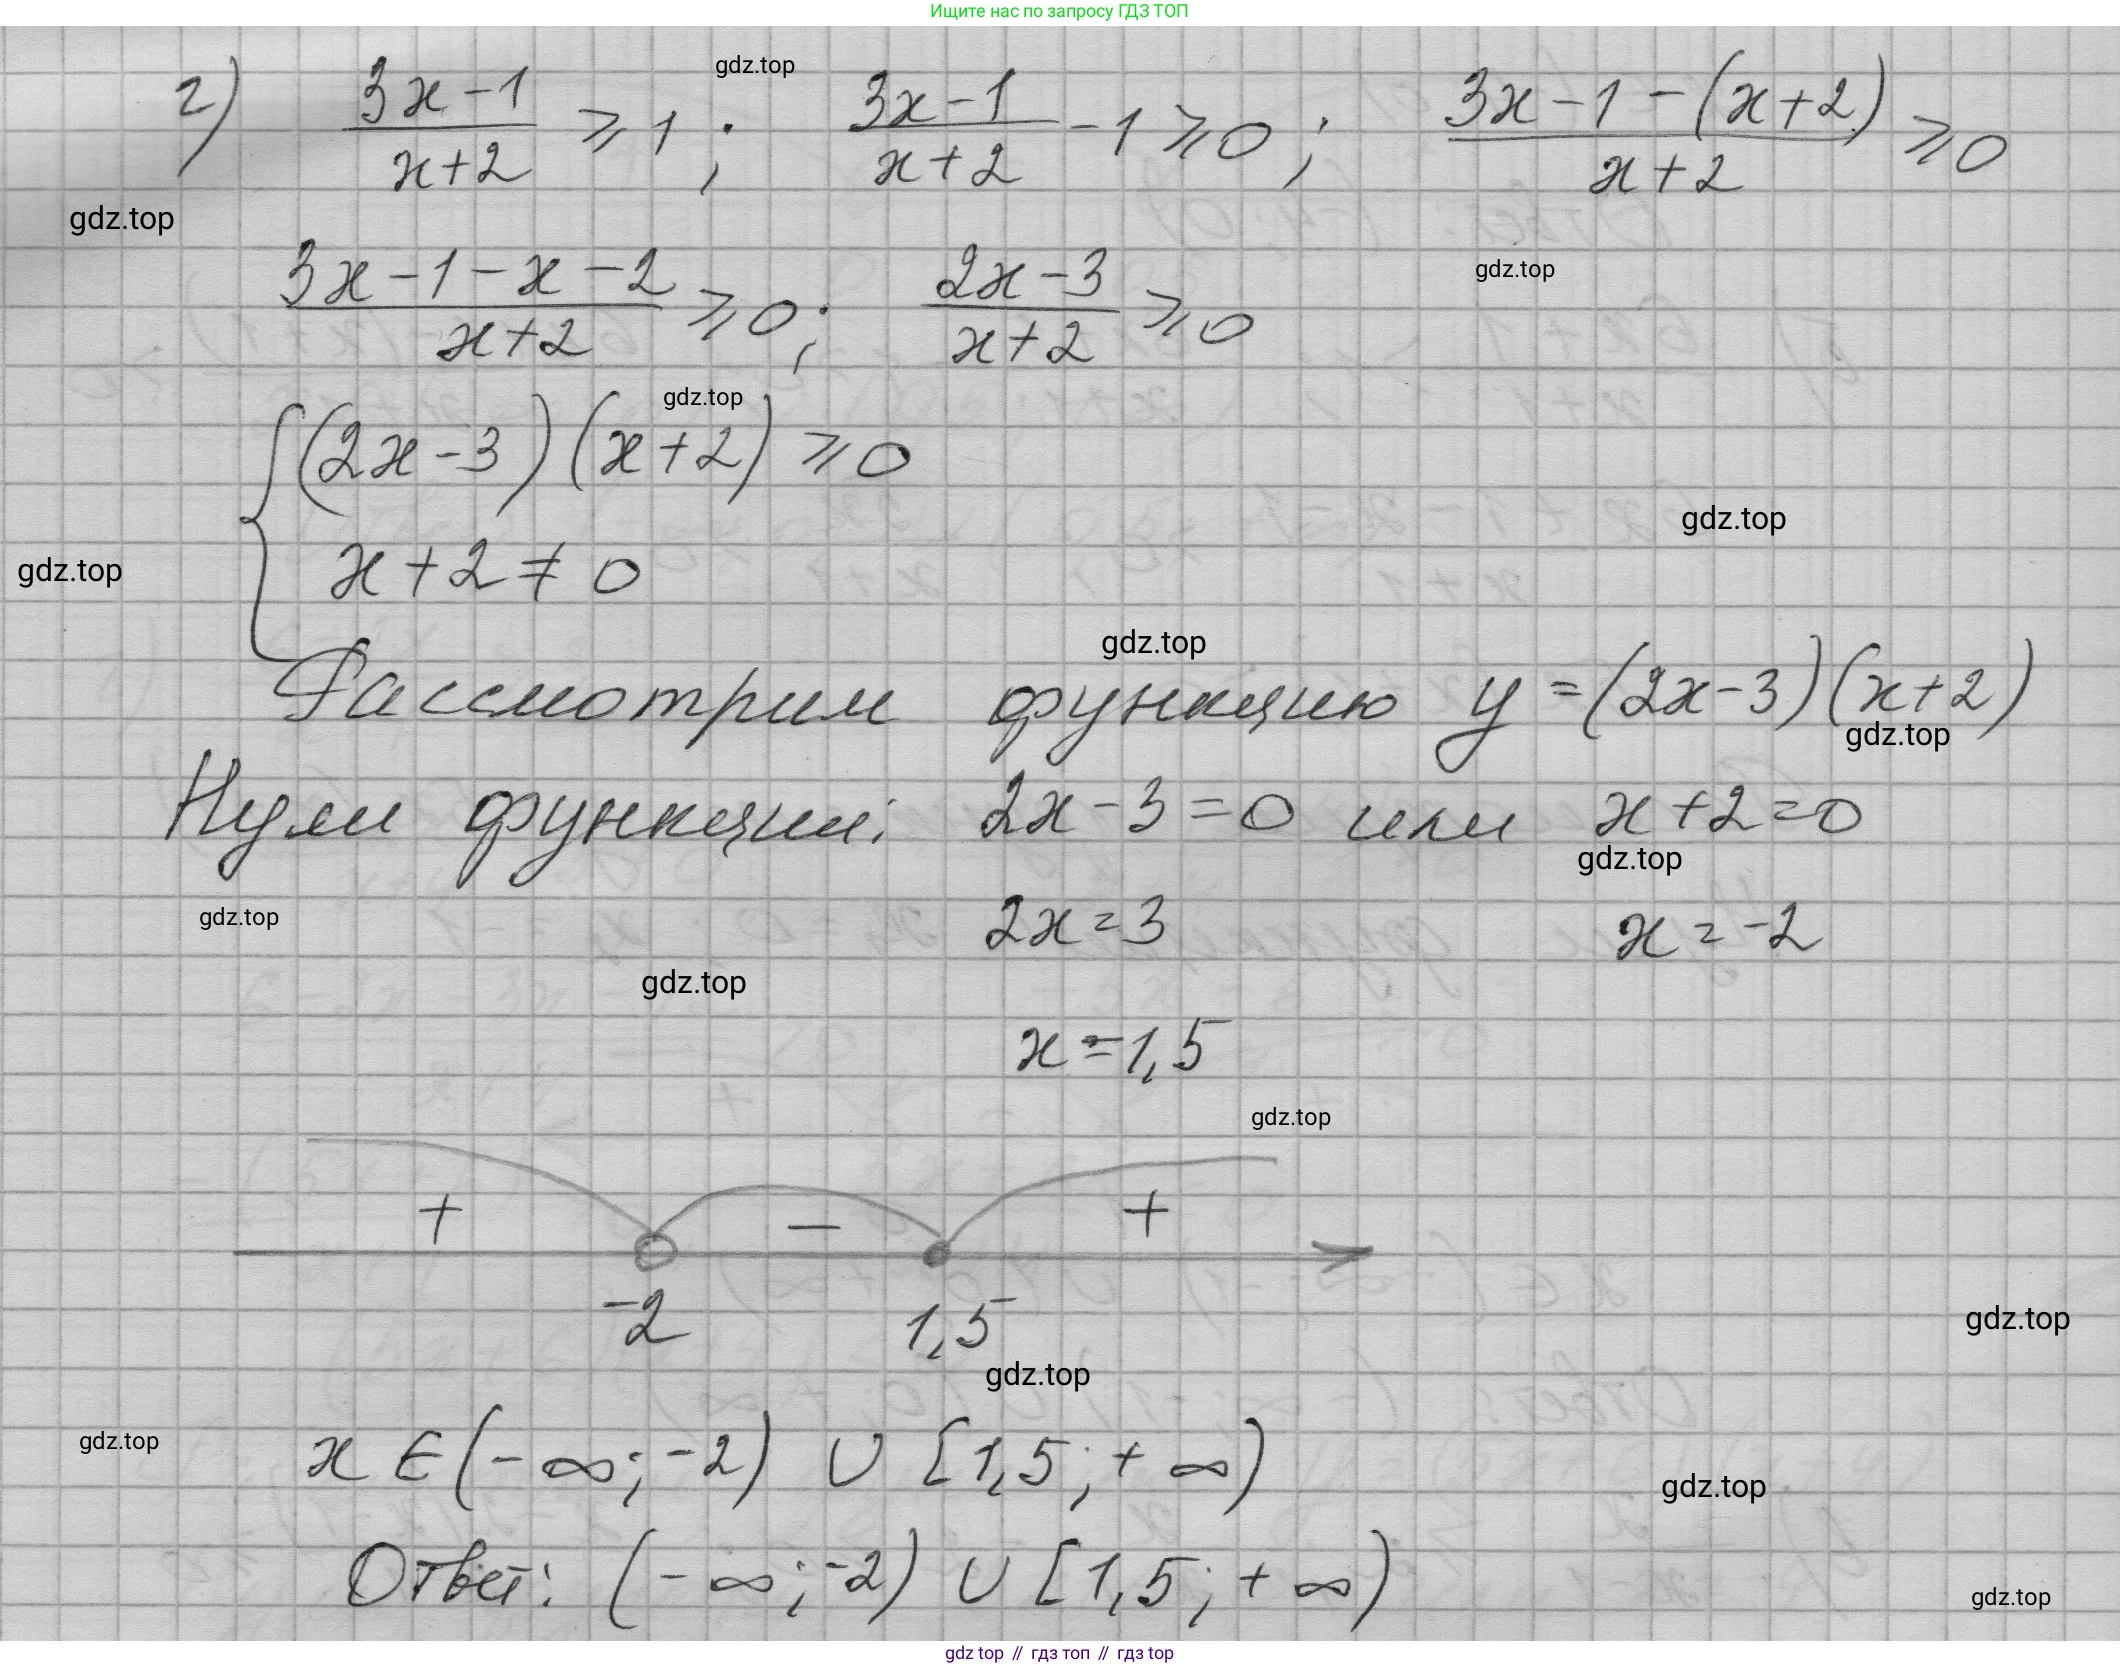 Ищите нас по запросу ГДЗ ТОП
г) (3x-1)/(x+2) ⩾ 1 ; (3x-1)/(x+2) - 1 ⩾ 0 ; (3x-1-(x+2))/(x+2) ⩾ 0
gdz.top
gdz.top
(3x-1-x-2)/(x+2) ⩾ 0; (2x-3)/(x+2) ⩾ 0
gdz.top
gdz.top
{ (2x-3)(x+2) ⩾ 0
gdz.top
x+2 ≠ 0
gdz.top
gdz.top
Рассмотрим функцию y=(2x-3)(x+2)
gdz.top
Нули функции: 2x-3=0 или x+2=0
gdz.top
gdz.top
2x=3 x=-2
gdz.top
x=1,5
gdz.top
+ - +
-2 1,5
gdz.top
gdz.top
x ∈ (-∞;-2) ∪ [1,5;+∞)
gdz.top
gdz.top
Ответ: (-∞;-2) ∪ [1,5;+∞)
gdz.top
gdz top // гдз топ // гдз top